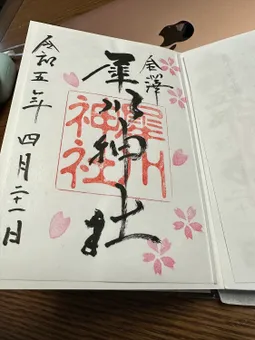 金澤
犀川神社
犀川
神社
令和五年 四月二十一日